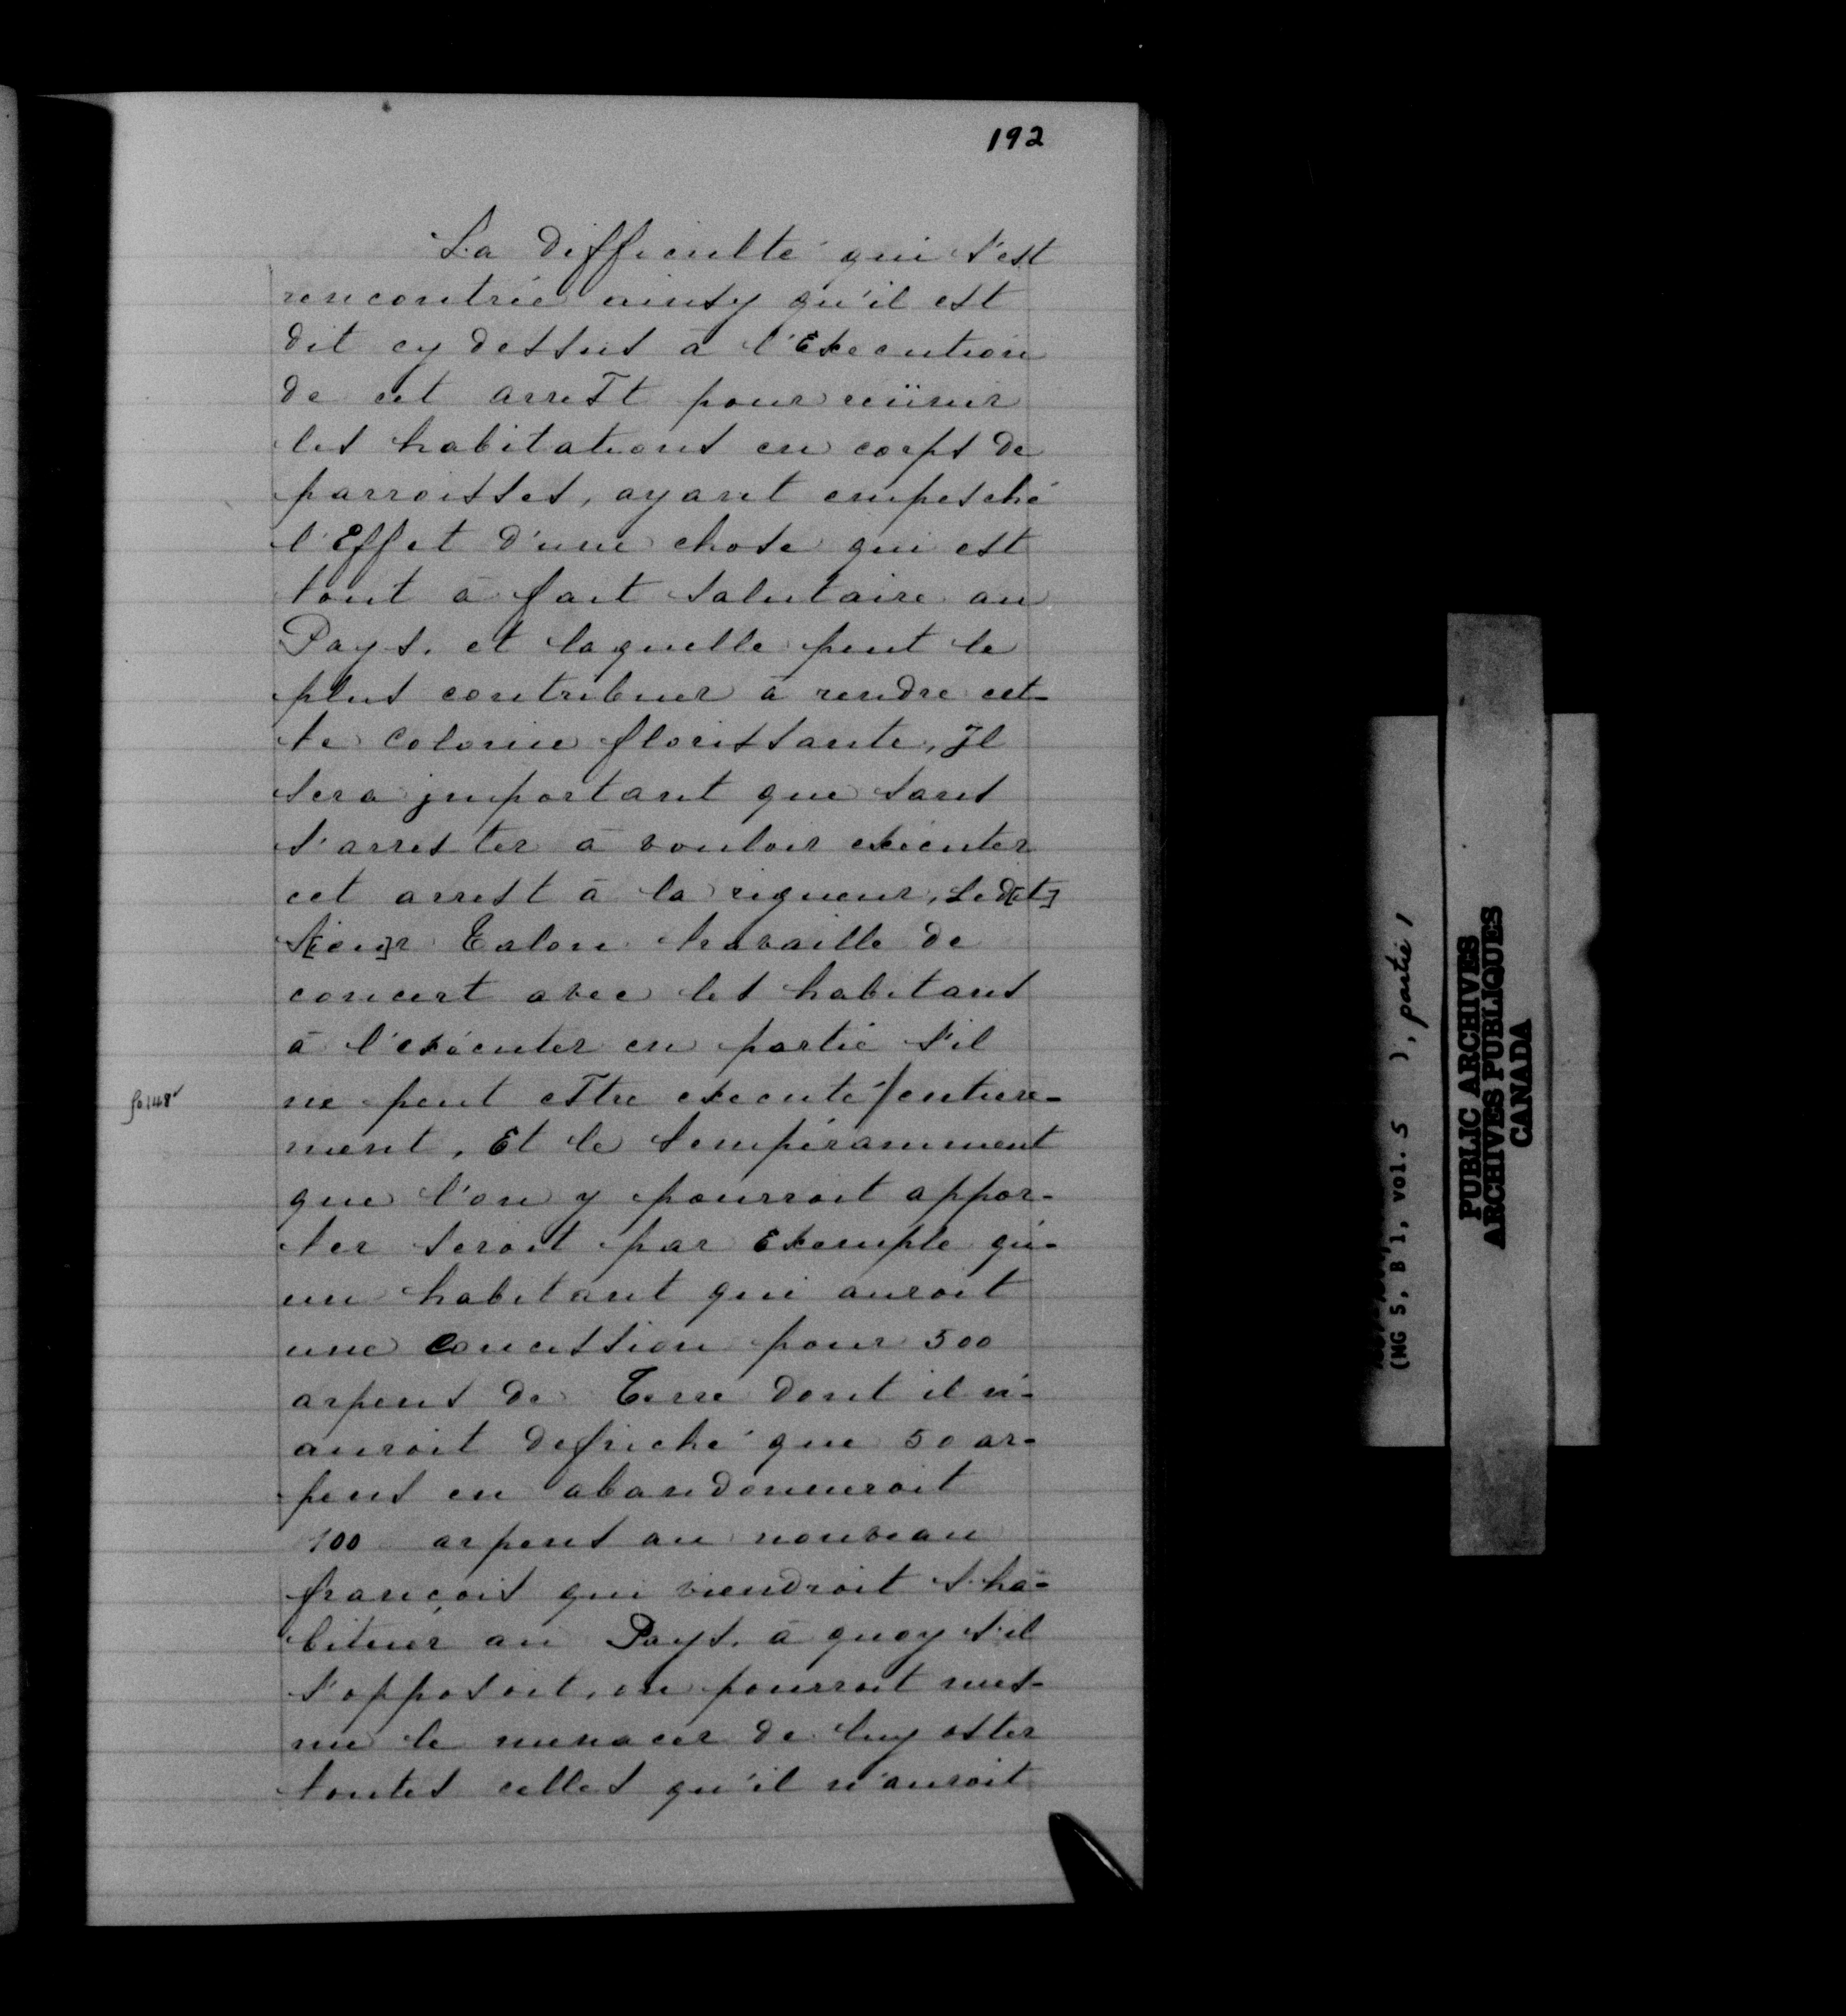 192
La difficulté qui s'est
rencontrée ainsy qu'il est
dit cy dessus à l'Execution
de cet arrest pour reünir
les habitations en corps de
parroisses, ayant empesché
l'Effet d'une chose qui est
tout à fait salutaire au
Pays, et laquelle peut le
plus contribuer à rendre cet-
te Colonie florissante, Jl
sera jmportant que sans
s'arrester à vouloir exécuter
cet arrest à la rigueur, Led[it]
S[ieu]r Talon travaille de
concert avec les habitans
à l'exécuter en partie s'il
fo 148v
ne peut estre executé/entiere-
ment, Et le tempéramment
que l'on y pourroit appor-
ter seroit par Exemple qu'-
un habitant qui auroit
une Concession pour 500
arpens de Terre dont il n'-
auroit defriché que 50 ar-
pens en abandonneroit
100 arpens au nouveau
françois qui viendroit s'ha-
bituer au Pays, à quoy s'il
s'opposoit, on pourroit mes-
me le menacer de luy oster
toutes celles qu'il n'auroit
(MG 5, B 1, vol. 5 ), partie 1
PUBLIC ARCHIVES
ARCHIVES PUBLIQUES
CANADA